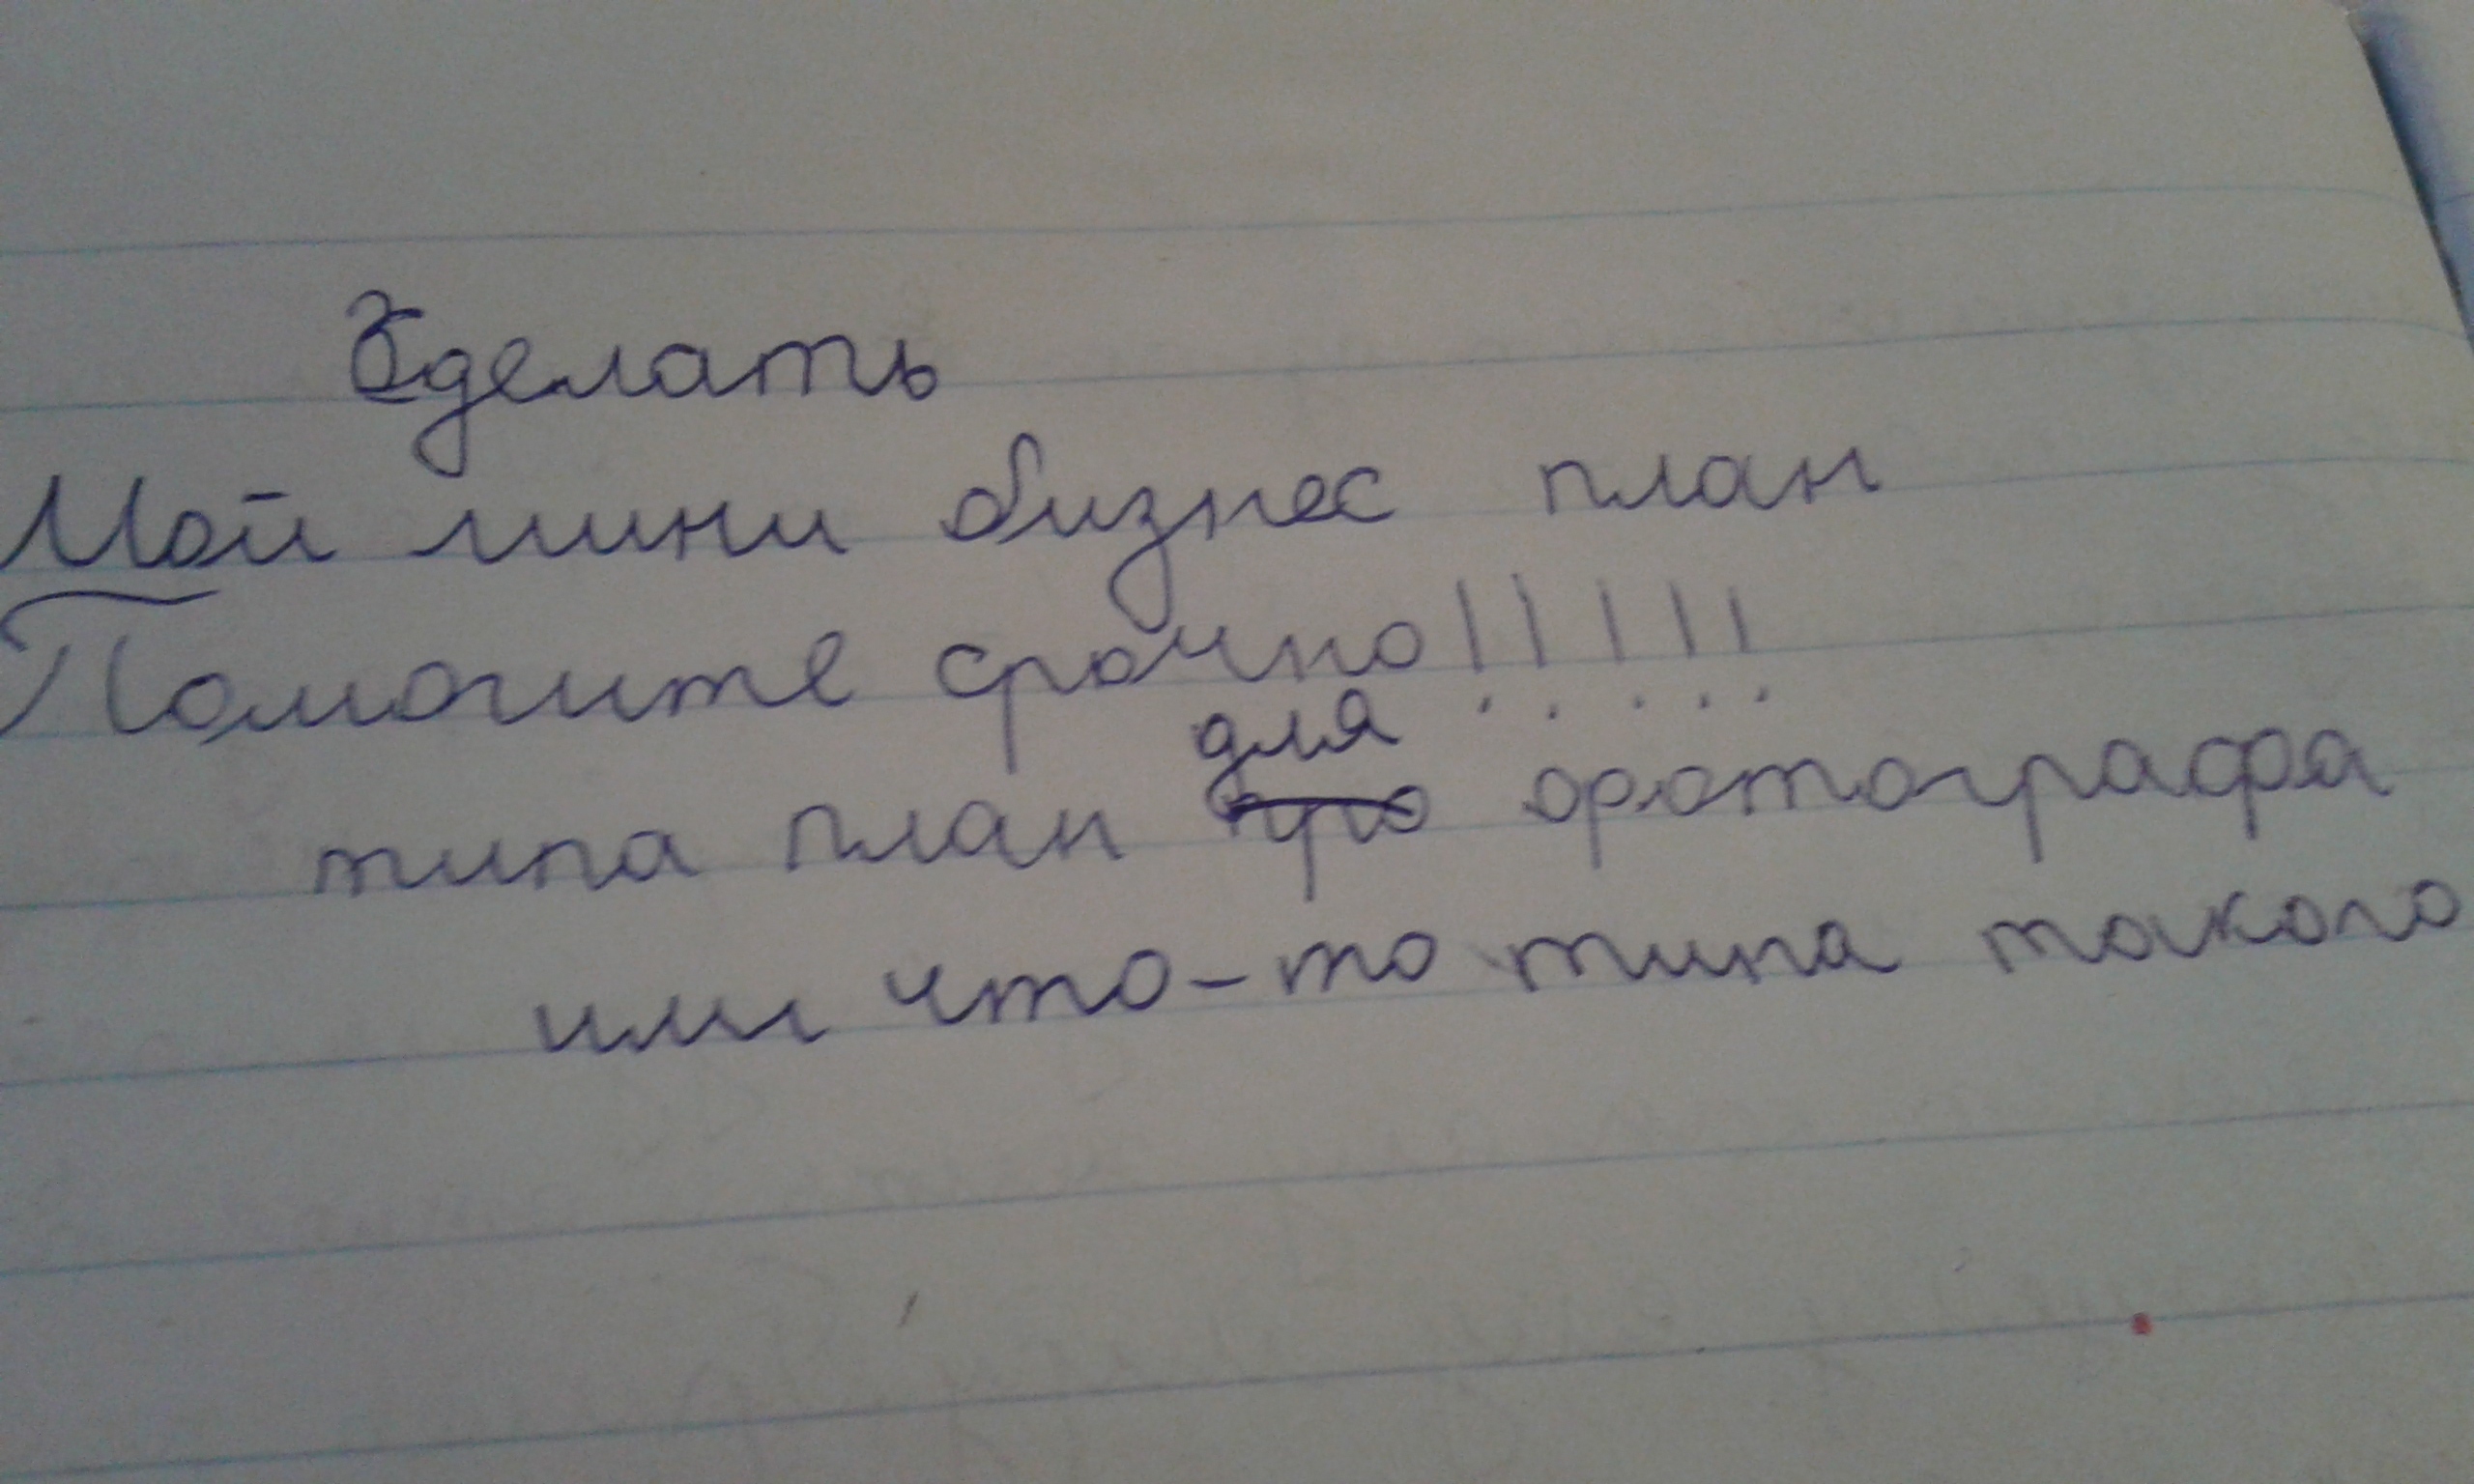 Сделать
Мой мини бизнес план
Помогите срочно!!!!!
для
типа план про фотографа
или что-то типа такого